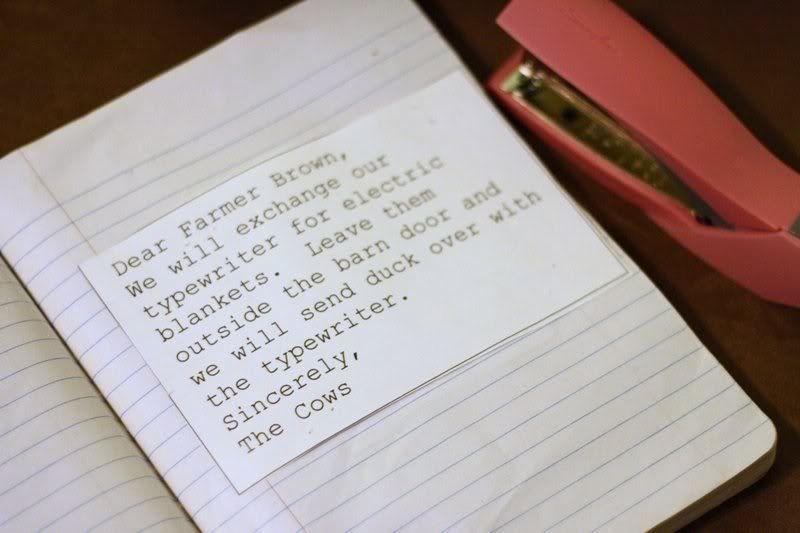 Dear Farmer Brown,
We will exchange our
typewriter for electric
blankets.  Leave them
outside the barn door and
we will send duck over with
the typewriter.
Sincerely,
The Cows